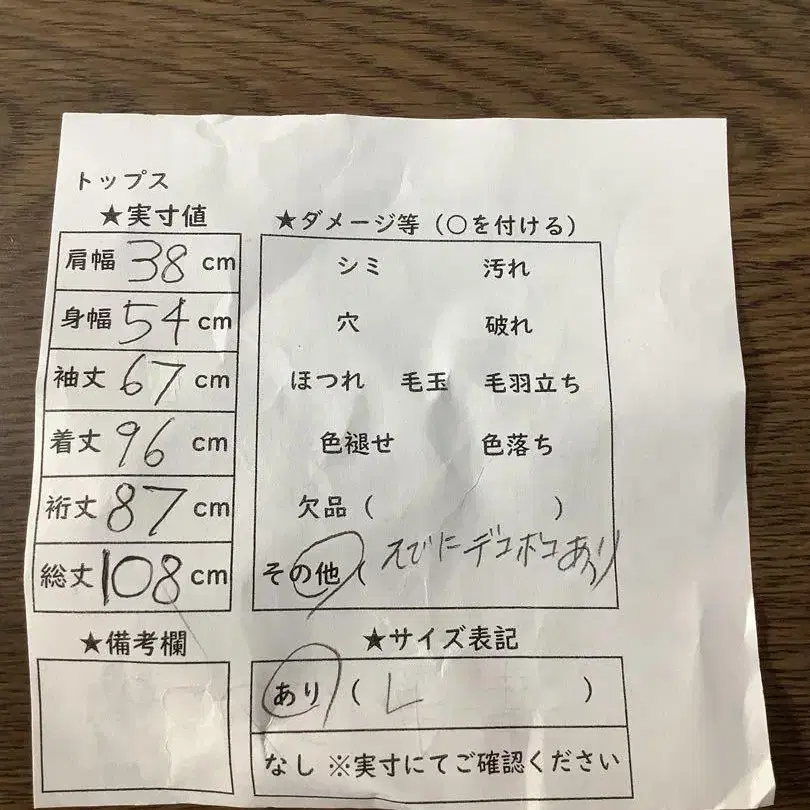 トップス
★実寸値
肩幅 38 cm
身幅 54 cm
袖丈 67 cm
着丈 96 cm
裄丈 87 cm
総丈 108 cm
★備考欄
★ダメージ等（○を付ける）
シミ 汚れ
穴 破れ
ほつれ 毛玉 毛羽立ち
色褪せ 色落ち
欠品（ ）
その他（えりにデコボコあり
★サイズ表記
あり（ L ）
なし ※実寸にてご確認ください